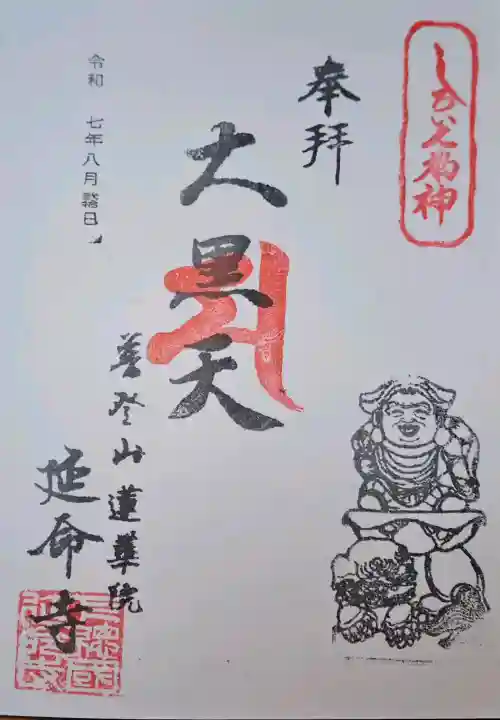 しかいど福神
奉拝
大黒天
善登山蓮華院
延命寺
令和 七年八月 日